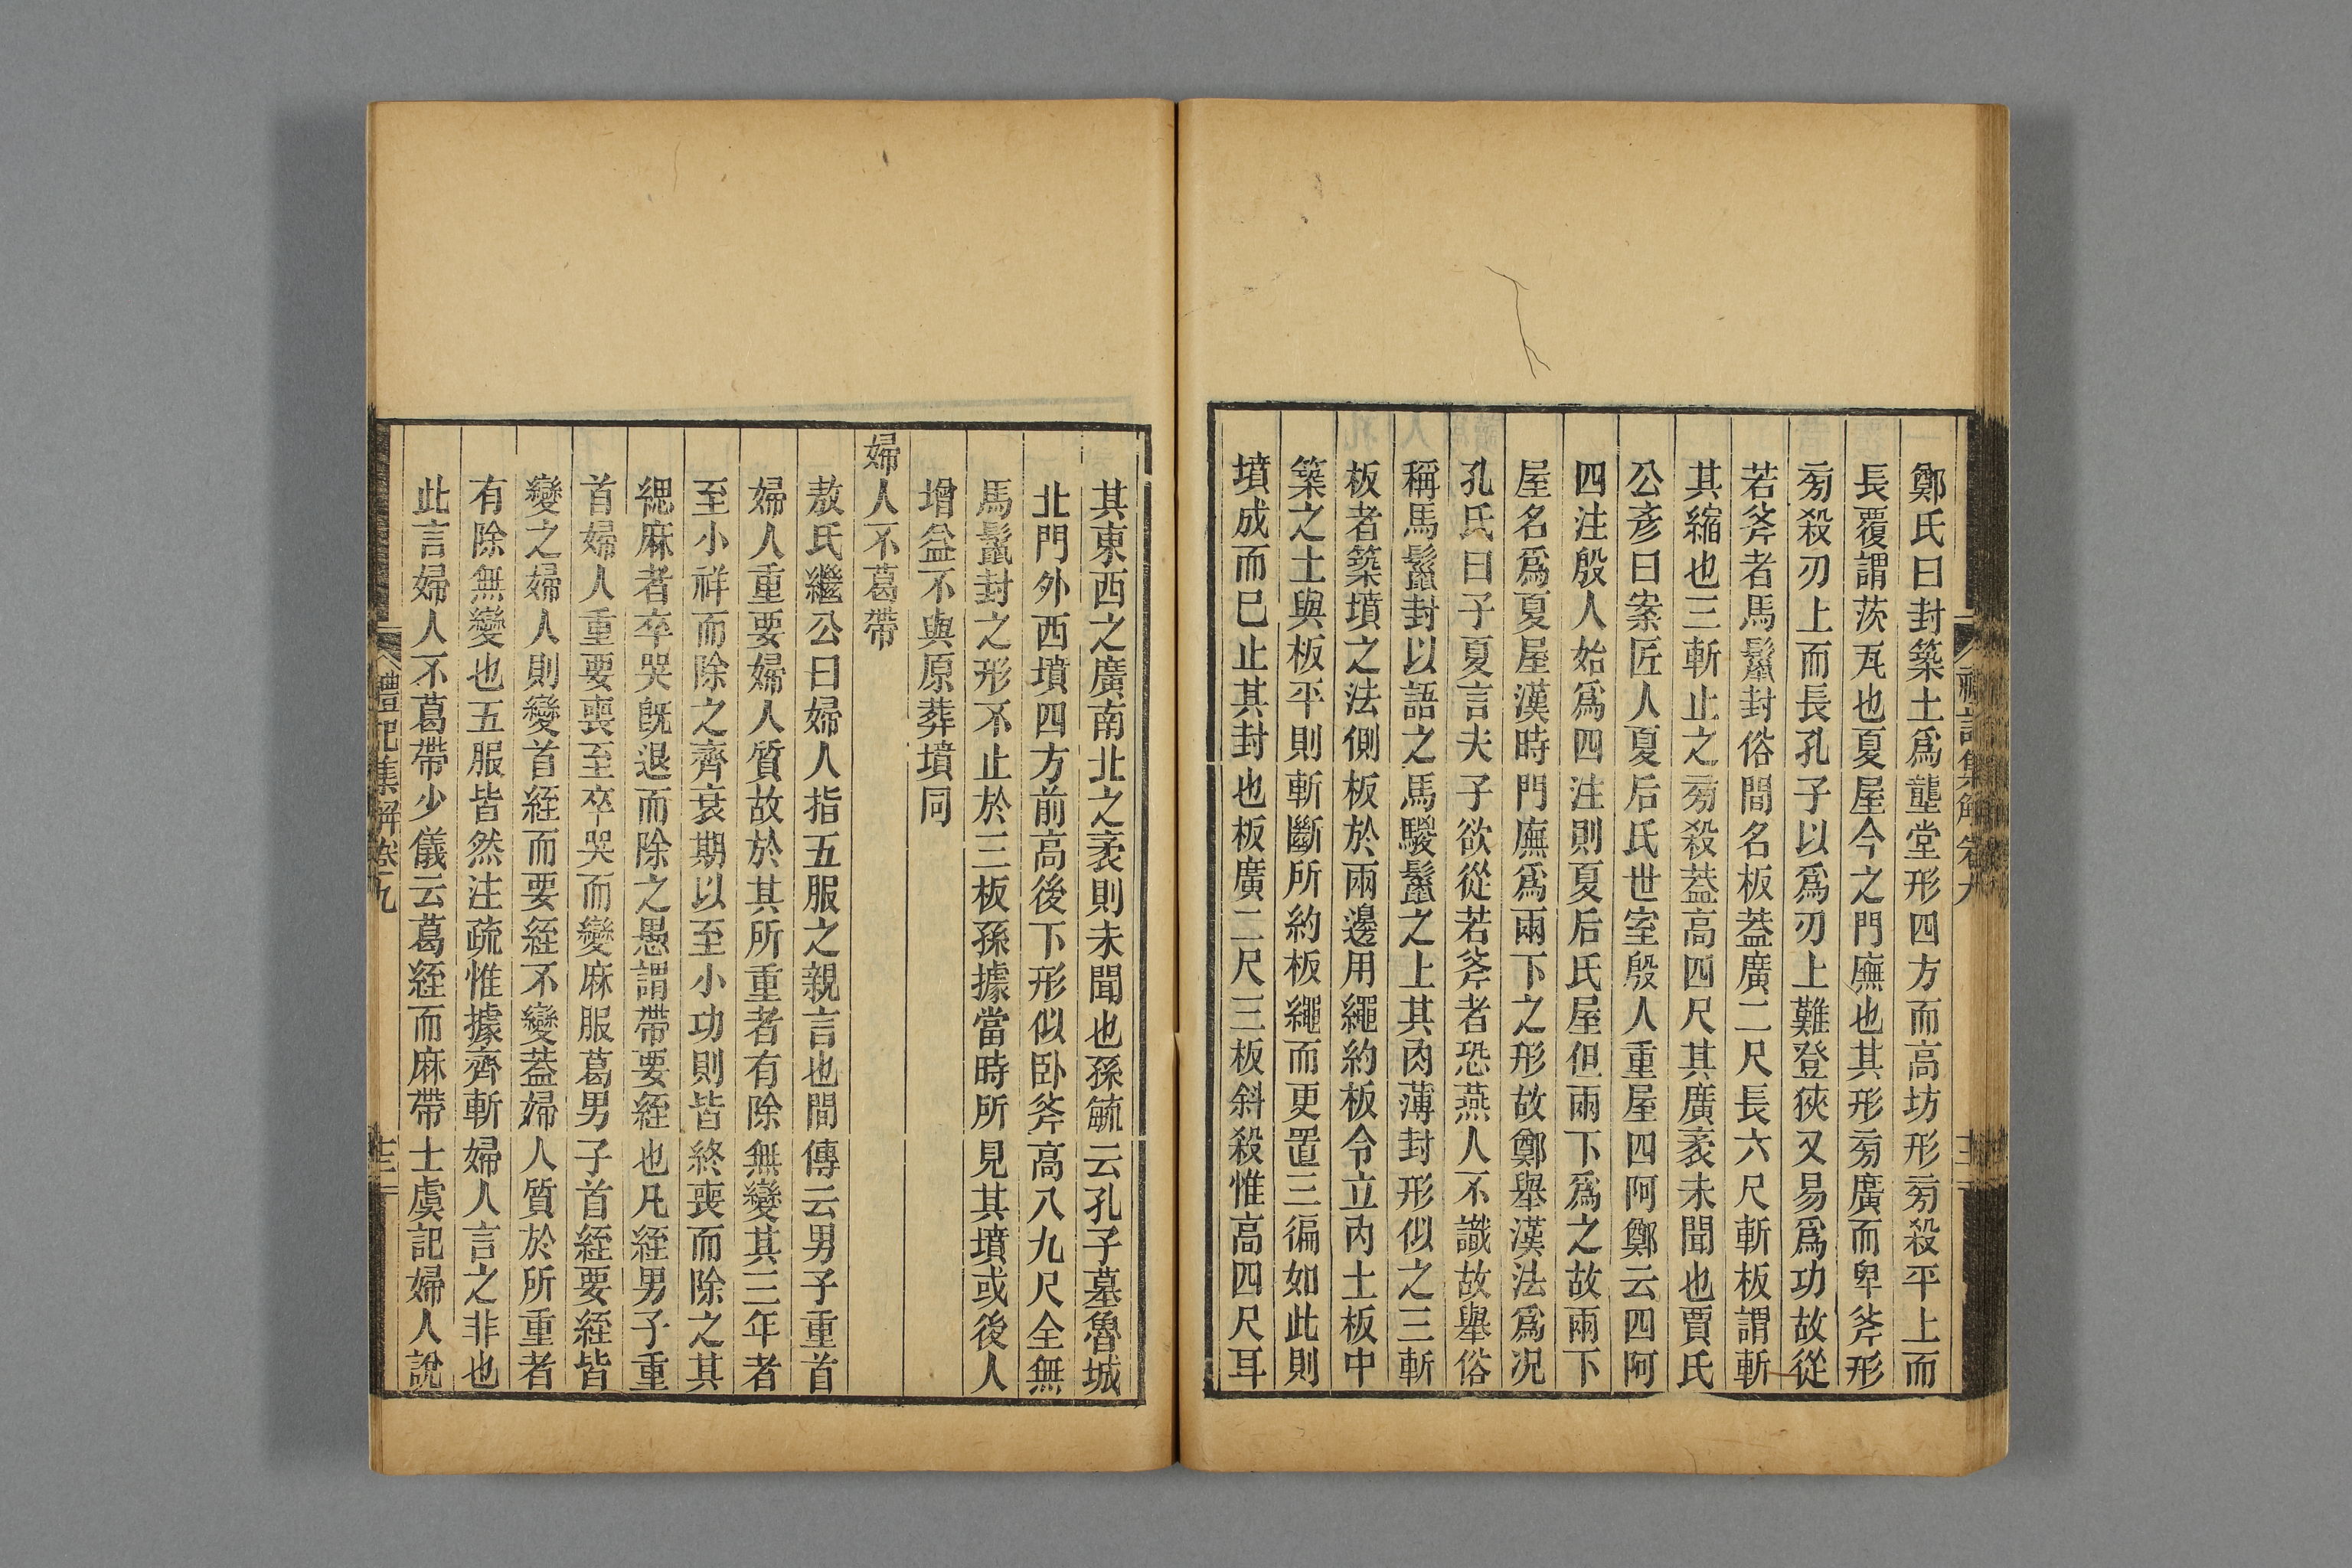 鄭氏曰封築土爲壟堂形四方而高坊形旁殺平上而
長覆謂茨瓦也夏屋今之門廡也其形旁廣而卑斧形
旁殺刃上而長孔子以爲刃上難登狹又易爲功故從
若斧者馬鬣封俗間名板蓋廣二尺長六尺斬板謂斬
其縮也三斬止之旁殺蓋高四尺其廣袤未聞也賈氏
公彥曰案匠人夏后氏世室殷人重屋四阿鄭云四阿
四注殷人始爲四注則夏后氏屋但兩下爲之故兩下
屋名爲夏屋漢時門廡爲兩下之形故鄭舉漢法爲况
孔氏曰子夏言夫子欲從若斧者恐燕人不識故舉俗
稱馬鬣封以語之馬騣鬣之上其肉薄封形似之三斬
板者築墳之法側板於兩邊用繩約板令立內土板中
築之土與板平則斬斷所約板繩而更置三徧如此則
墳成而已止其封也板廣二尺三板斜殺惟高四尺耳
禮記集解卷九
其東西之廣南北之袤則未聞也孫毓云孔子墓魯城
北門外西墳四方前高後下形似卧斧高八九尺全無
馬鬣封之形不止於三板孫據當時所見其墳或後人
增益不與原葬墳同
婦人不葛帶
敖氏繼公曰婦人指五服之親言也間傳云男子重首
婦人重要婦人質故於其所重者有除無變其三年者
至小祥而除之齊衰期以至小功則皆終喪而除之其
緦麻者卒哭旣退而除之愚謂帶要絰也凡絰男子重
首婦人重要喪至卒哭而變麻服葛男子首絰要絰皆
變之婦人則變首絰而要絰不變蓋婦人質於所重者
有除無變也五服皆然注疏惟據齊斬婦人言之非也
此言婦人不葛帶少儀云葛絰而麻帶士虞記婦人說
禮記集解卷九